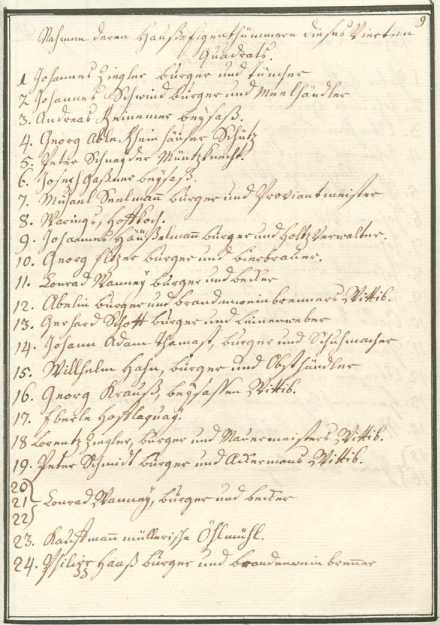 9
Nahmen deren Haußeigenthümmern dieses Vierten
Quadrats.
1 Johannes Ziegler bürger und tüncher
2 Johannes Schwind bürger und Meelhändler
3. Andreas beysaß.
4. Georg Schütz
5. Peter Schneyder Müntzknecht.
6. Joseph Gaßner beysaß.
7. Michael Seelmann bürger und Proviantmeister
8. Waringes, Hoffkoch.
9. Johannes Häußelmann bürger und Holtzverwalter.
10. Georg bürger und bierbrauer.
11. Conrad Wanney bürger und becker
12. Abelin bürger und brandenwein brenners Wittib.
13. Gerhard Schott bürger und Leinenweber
14. Johann Adam bürger und Schuhmacher
15. Willhelm Hahn, bürger und Obsthändler
16. Georg Krauß, beysassen Wittib.
17. Eberle Hofflaquay.
18 Lorentz Ziegler, bürger und Mauermeisters Wittib.
19. Peter Schmidt bürger und Ackermans Wittib.
20
21 Conrad Wanney, bürger und becker
22
23. Kauffmann müllerische Öhlmühl.
24. Philipp Haaß bürger und brandenwein brenner